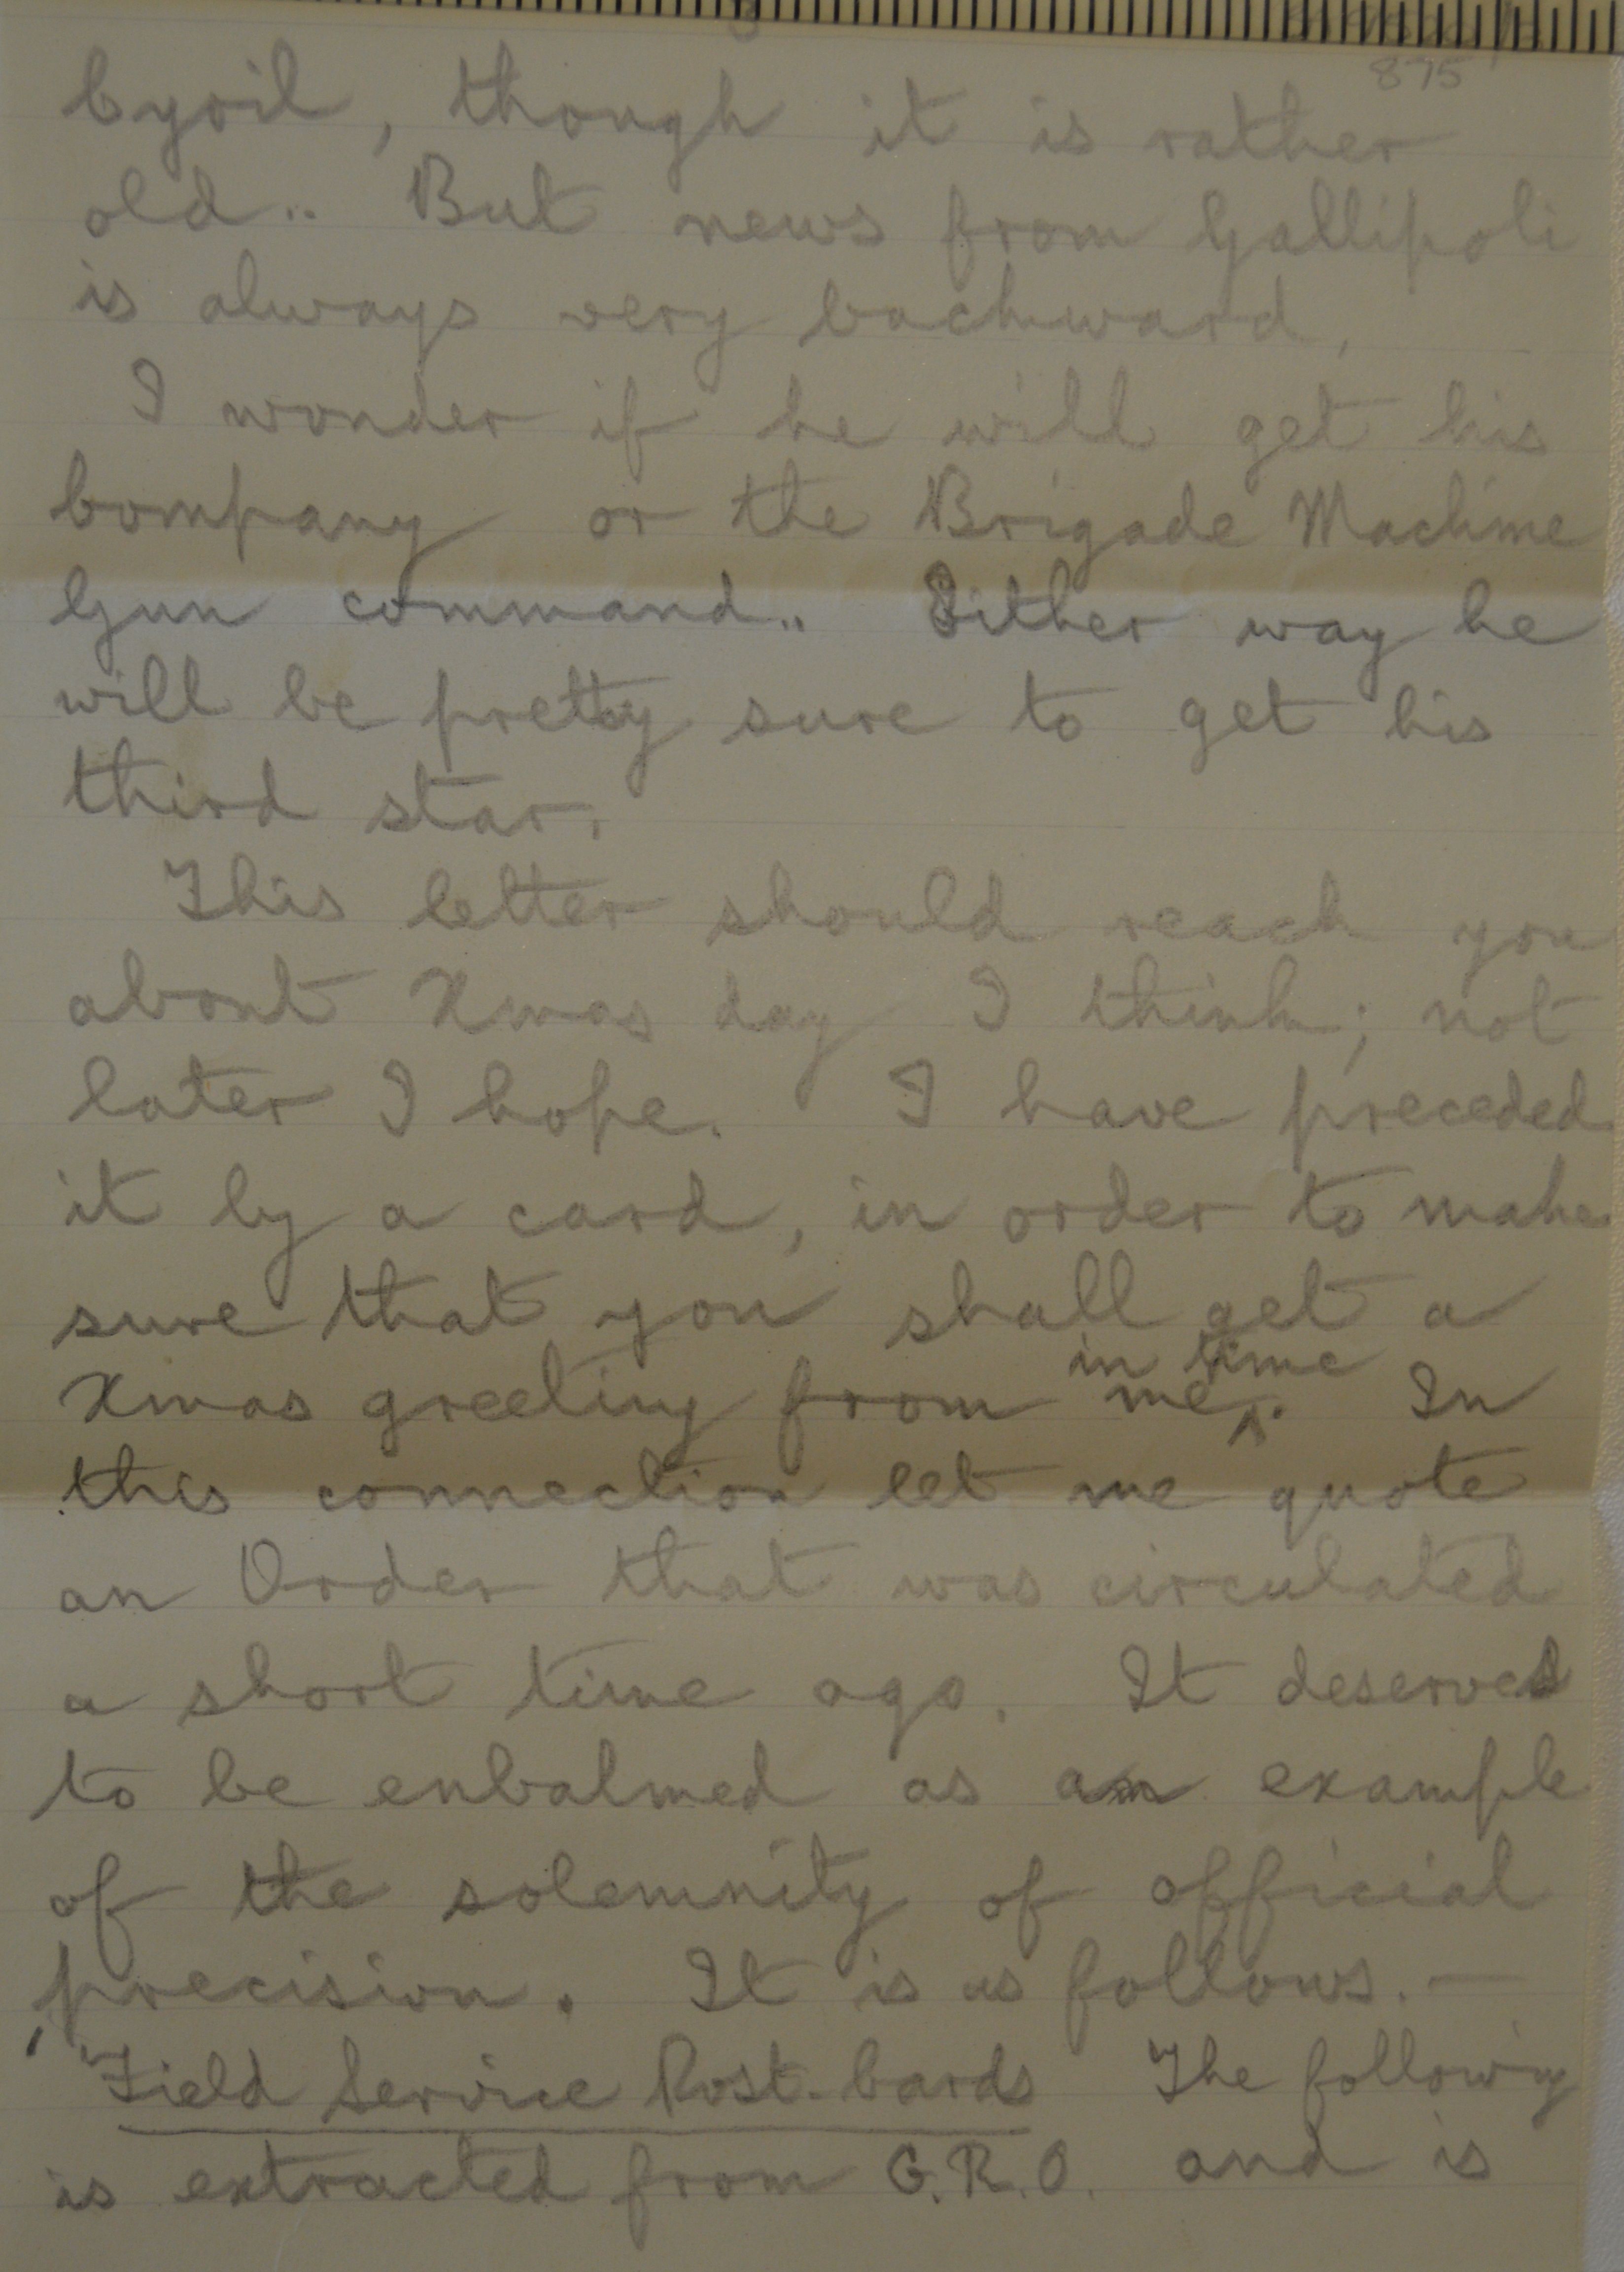 3
875
Cyril, though it is rather
old.. But news from Gallipoli
is always very backward,
I wonder if he will get his
Company or the Brigade Machine
Gun command.. Either way he
will be pretty sure to get his
third star.
This letter should reach you
about Xmas day I think; not
later I hope. I have preceded
it by a card, in order to make
sure that you shall get a
in time
Xmas greeting from me ^. In
this connection let me quote
an Order that was circulated
a short time ago. It deserves
to be enbalmed as an example
of the solemnity of official
precision. It is as follows. —
'Field Service Post-Cards The following
is extracted from G.R.O. and is